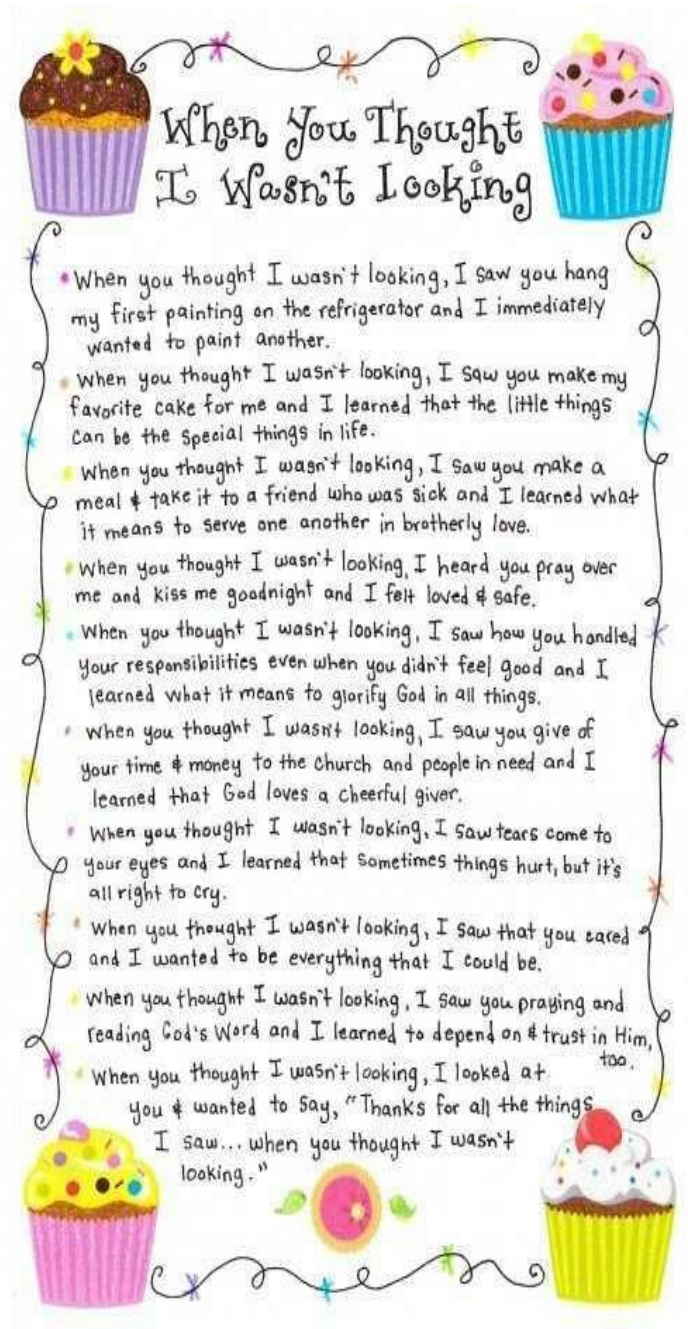 When You Thought
I Wasn't Looking
• When you thought I wasn't looking, I saw you hang
my first painting on the refrigerator and I immediately
wanted to paint another.
• When you thought I wasn't looking, I saw you make my
favorite cake for me and I learned that the little things
can be the special things in life.
• When you thought I wasn't looking, I saw you make a
meal & take it to a friend who was sick and I learned what
it means to serve one another in brotherly love.
• When you thought I wasn't looking, I heard you pray over
me and kiss me goodnight and I felt loved & safe.
• When you thought I wasn't looking, I saw how you handled
your responsibilities even when you didn't feel good and I
learned what it means to glorify God in all things.
• When you thought I wasn't looking, I saw you give of
your time & money to the church and people in need and I
learned that God loves a cheerful giver.
• When you thought I wasn't looking, I saw tears come to
your eyes and I learned that sometimes things hurt, but it's
all right to cry.
• When you thought I wasn't looking, I saw that you cared
and I wanted to be everything that I could be.
• When you thought I wasn't looking, I saw you praying and
reading God's Word and I learned to depend on & trust in Him,
too.
• When you thought I wasn't looking, I looked at
you & wanted to say, "Thanks for all the things
I saw... when you thought I wasn't
looking."